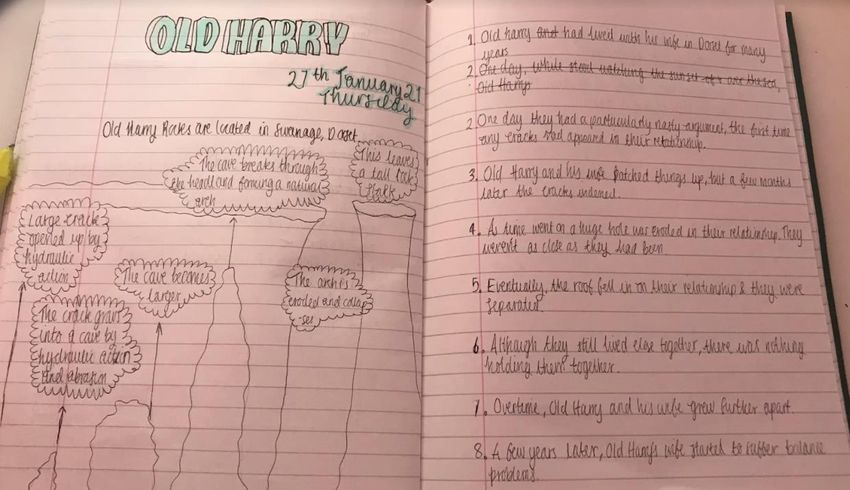 OLD HARRY
27th January 21
Thursday
Old Harry Rocks are located in Swanage, Dorset.
The cave breaks through
the headland forming a natural
arch
This leaves
a tall rock
stack
Large crack
opened up by
hydraulic
action
The cave becomes
larger
The arch is
eroded and collap
-ses
The crack grows
into a cave by
hydraulic action
and abrasion
1. Old harry and had lived with his wife in Dorset for many
years
2. One day, while stood watching the sunset the sea,
Old Harry
2. One day they had a particularly nasty argument, the first time
any cracks had appeared in their relationship.
3. Old Harry and his wife patched things up, but a few months
later the cracks widened.
4. As time went on a huge hole was eroded in their relationship. They
weren't as close as they had been
5. Eventually, the roof fell in on their relationship & they were
separated.
6. Although they still lived close together, there was nothing
holding them together.
7. Overtime, Old Harry and his wife grew further apart.
8. A few years later, Old Harry's wife started to suffer balance
problems.